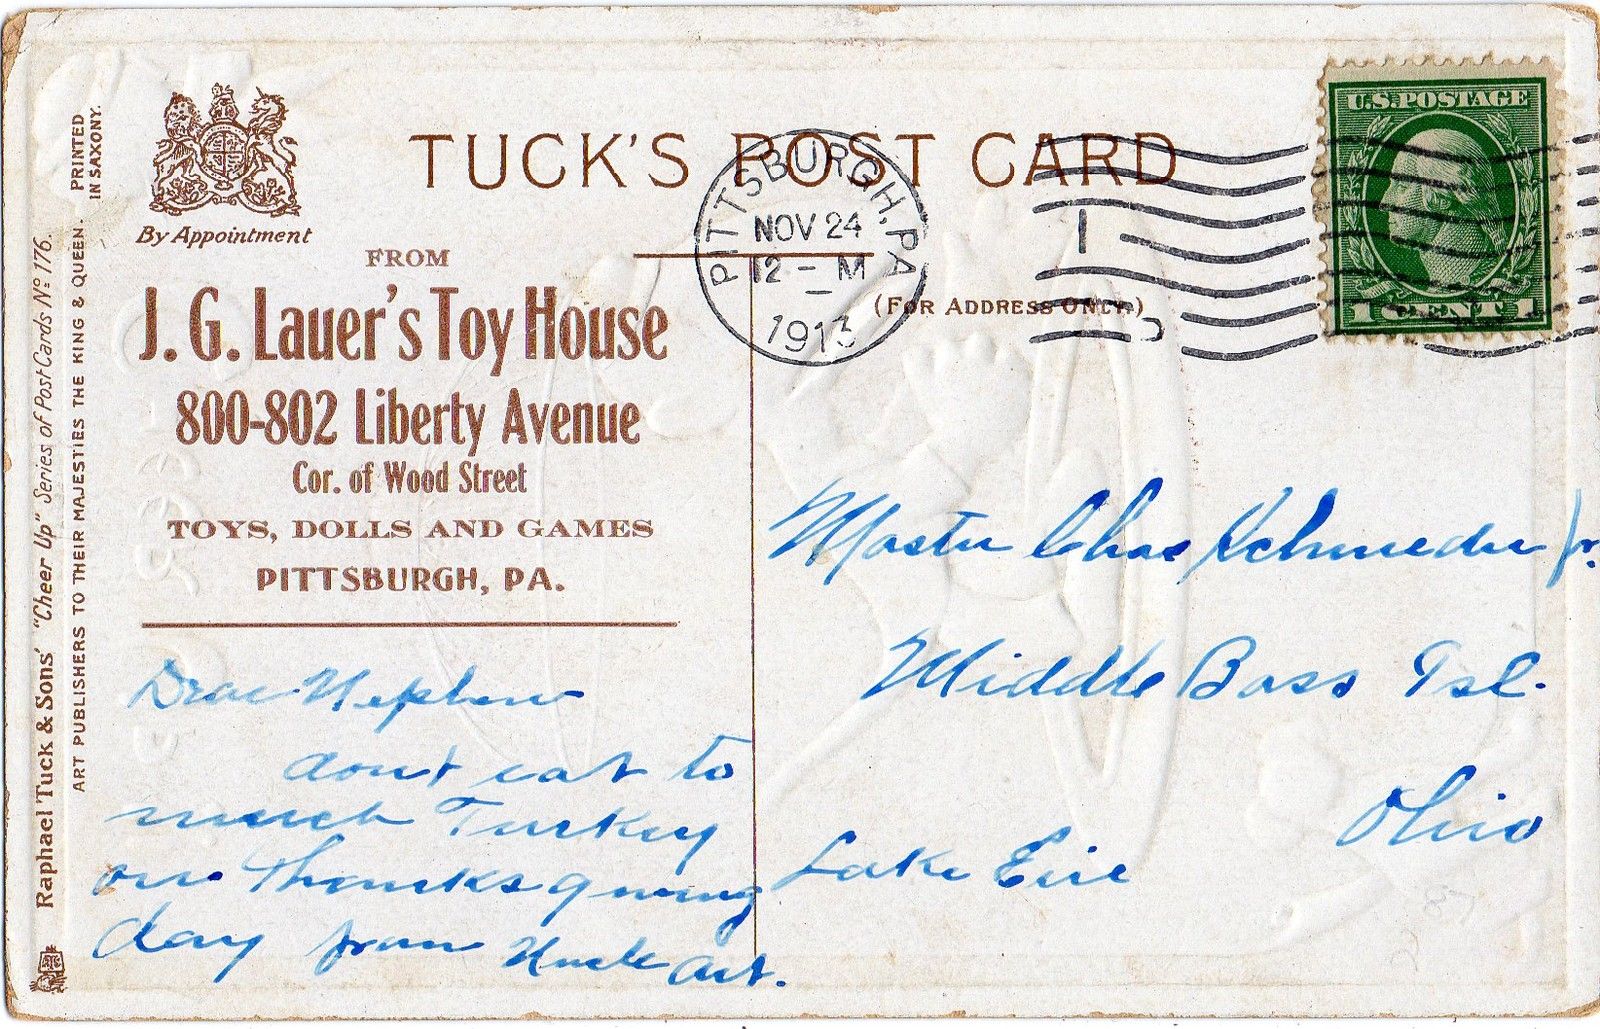 TUCK'S POST CARD
By Appointment
FROM
J. G. Lauer's Toy House
800-802 Liberty Avenue
Cor. of Wood Street
TOYS, DOLLS AND GAMES
PITTSBURGH, PA.
PRINTED
IN SAXONY.
Raphael Tuck & Sons' "Cheer Up" Series of Post Cards No 176.
ART PUBLISHERS TO THEIR MAJESTIES THE KING & QUEEN.
PITTSBURGH, PA
NOV 24
12 - M
1913
1
(FOR ADDRESS ONLY.)
U.S. POSTAGE
1 CENT 1
Dear Nephew
dont eat to
much Turkey
on Thanksgiving
day from Uncle Art.
Master Chas Schmeder Jr.
Middle Bass Isl.
Ohio
Lake Erie